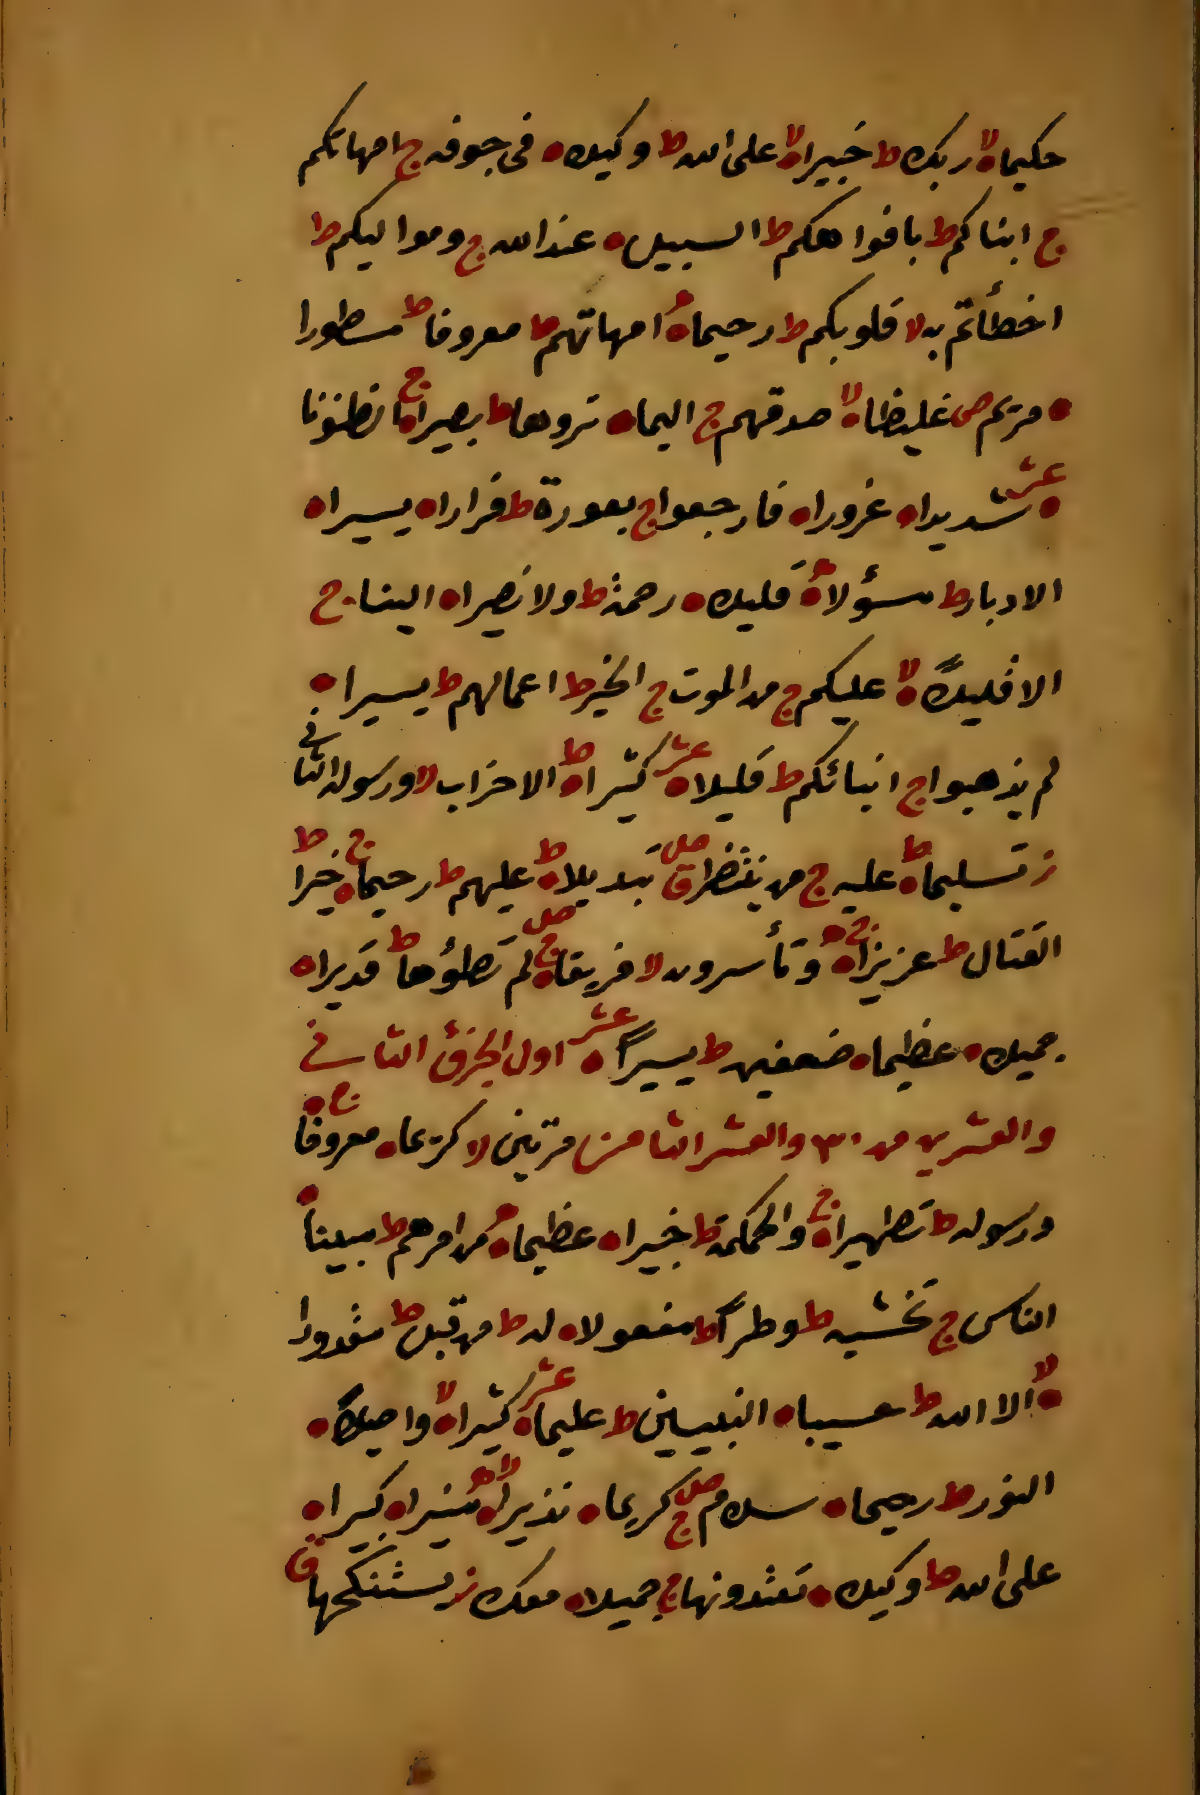 حكيما ه لا ربك ط خبيرا ه لا على الله ط وكيلا ه فى جوفه ج امهاتكم
ج ابناكم ط بافواهكم ط السبيل ه عند الله ج ومواليكم ط
اخطأتم به لا قلوبكم ط رحيما ه امهاتهم ط معروفا ط مسطورا
ه مريم ص غليظا ه لا صدقهم ج اليما ه تروها ط بصيرا ه ج الظنونا
ه عشر شديدا ه غرورا ه فارجعوا ج بعورة ط فرارا ه يسيرا ه
الادبار ط مسؤلا ه قليلا ه رحمة ط ولا نصيرا ه الينا ج
الا قليلاً ه لا عليكم ج من الموت ج الخير ط اعمالهم ط يسيرا ه
لم يذهبوا ج انبائكم ط قليلا ه عشر كثيرا ه ط الاحزاب لا ورسوله الثانى
ز تسليما ه ط عليه ج من ينتظر ق صلى تبديلا ه ط عليهم ط رحيما ه ج خيرا ط
القتال ط عزيزا ه ج وتأسرون لا فريقا ه ج صلى لم تطؤها ط قديرا ه
جميلا ه عظيما ه ضعفين ط يسيراً ه عشر اول الجزؤ الثانى
والعشرين من ٣٠ والعشر الثامن مرتين لا كريما ه معروفا ه ج
ورسوله ط تطهيرا ه ج والحكمة ط خبيرا ه عظيما ه من امرهم ط مبينا ه
الناس ج تخشيه ط وطراً ط مفعولا ه له ط من قبل ط مقدورا
ه لا الا الله ط حسيبا ه النبيين ط عليما ه عشر كثيرا ه لا واصيلا ه
النور ط رحيما ه سلام صلى ج كريما ه نذيرا ه لا منيرا ه كبيرا ه
على الله ط وكيلا ه تعتدونها ج جميلا ه معك ز يستنكحها ق